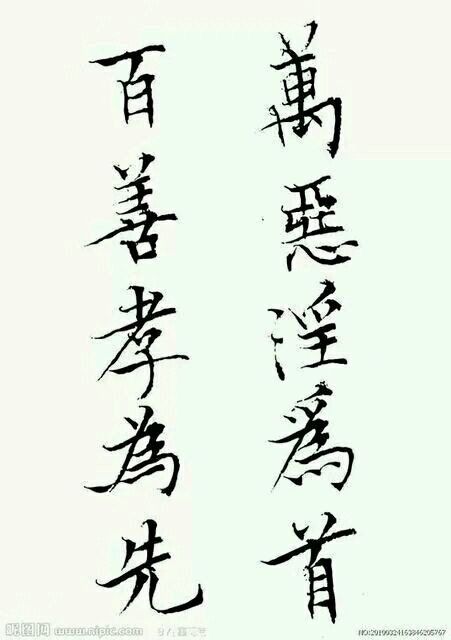 萬惡淫爲首
百善孝為先
昵图网
www.nipic.com
NO:20190324163846205767